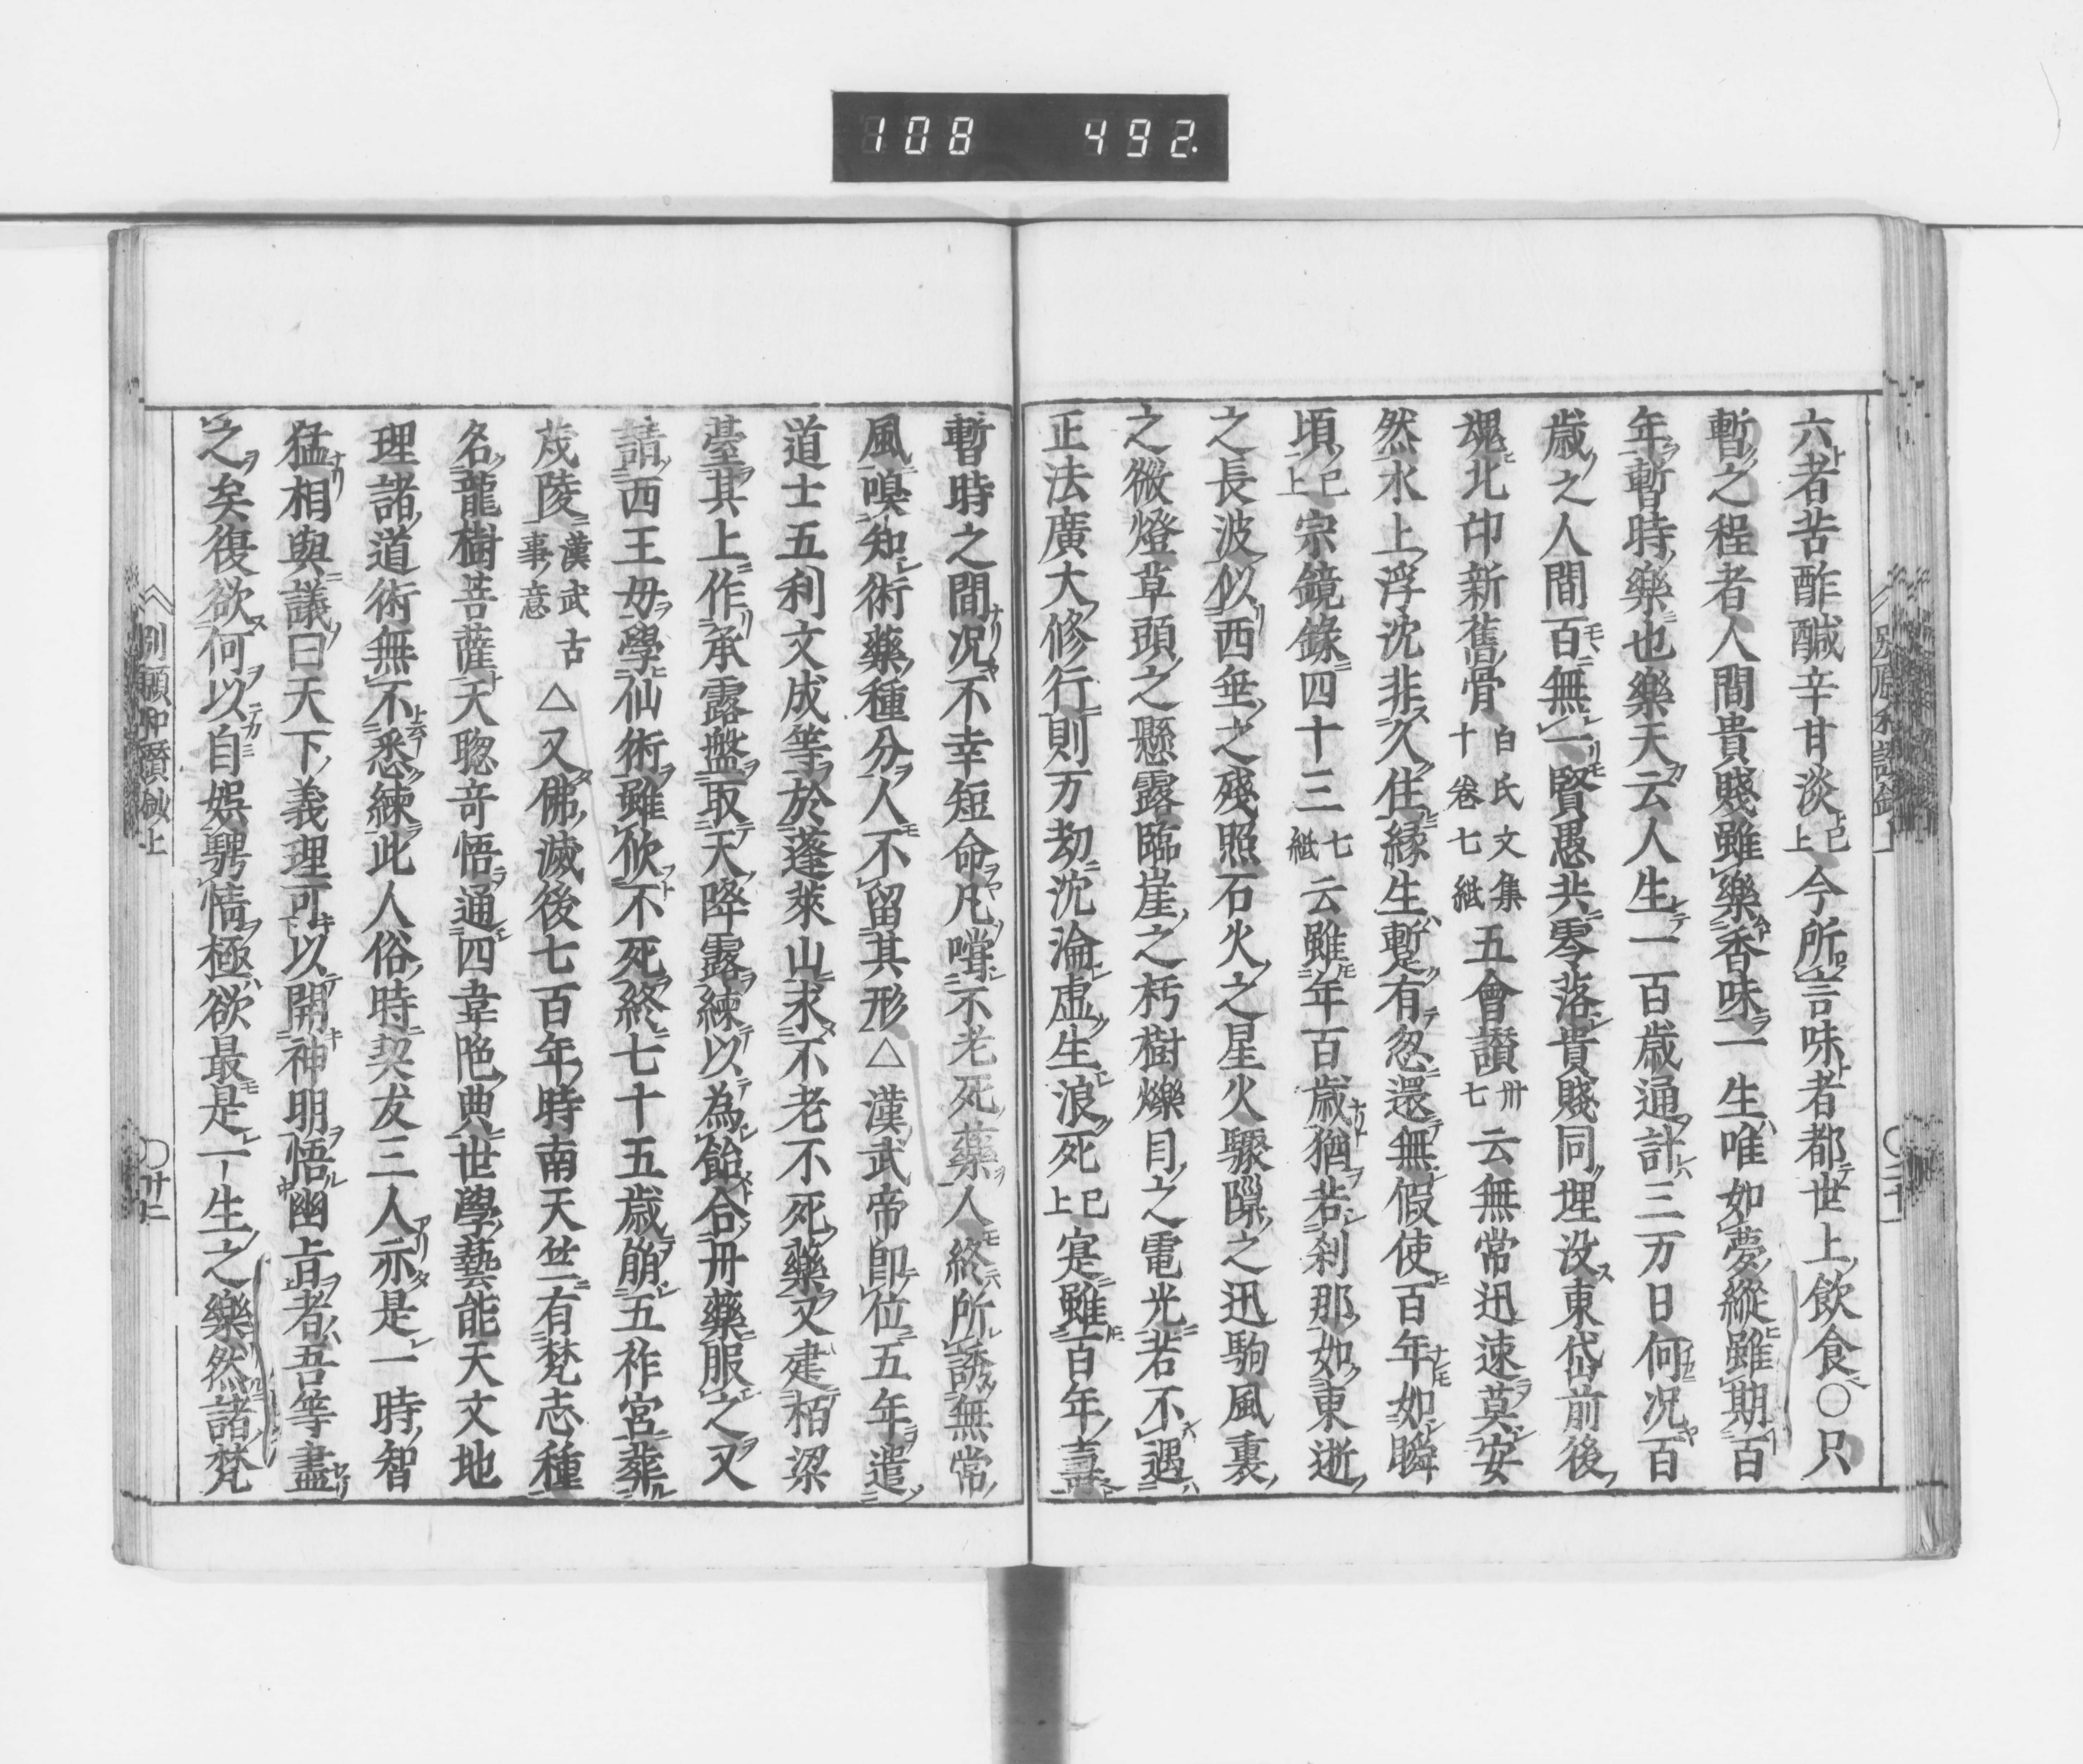 108 492.
六者苦酢醎辛甘淡已上今所言味者都世上飲食○只
暫之程者人間貴賤雖樂香味一生唯如夢縱雖期百
年暫時樂也樂天云人生一百歳通計三万日何況百
歳之人間百無一賢愚共零落貴賤同埋没東岱前後
魂北邙新舊骨白氏文集十卷七紙五會讃卅七云無常迅速莫安
然水上浮沈非久住緣生暫有忽還無假使百年如瞬
頃已上宗鏡錄四十三七紙云雖年百歳猶若刹那如東逝
之長波似西垂之殘照石火之星火驟隙之迅駒風裏
之微燈草頭之懸露臨崖之朽樹爍目之電光若不遇
正法廣大修行則万劫沈淪虚生浪死已上寔雖百年壽
暫時之間況不幸短命凡嚐不老死藥人終所誘無常
風嗅知術藥種分人不留其形△漢武帝即位五年遣
道士五利文成等於蓬萊山求不老不死藥又建栢梁
臺其上作承露盤取天降露練以為飴合丹藥服之又
請西王母學仙術雖欣不死終七十五歳崩五祚宮葬
茂陵漢武古事意△又佛滅後七百年時南天竺有梵志種
名龍樹菩薩天聡奇悟通四韋陀典世學藝能天文地
理諸道術無不悉練此人俗時契友三人亦是一時智
猛相與議曰天下義理可以開神明悟幽旨者吾等盡
之矣復欲何以自娯騁情極欲最是一生之樂然諸梵
別願和讃鈔上
廿二